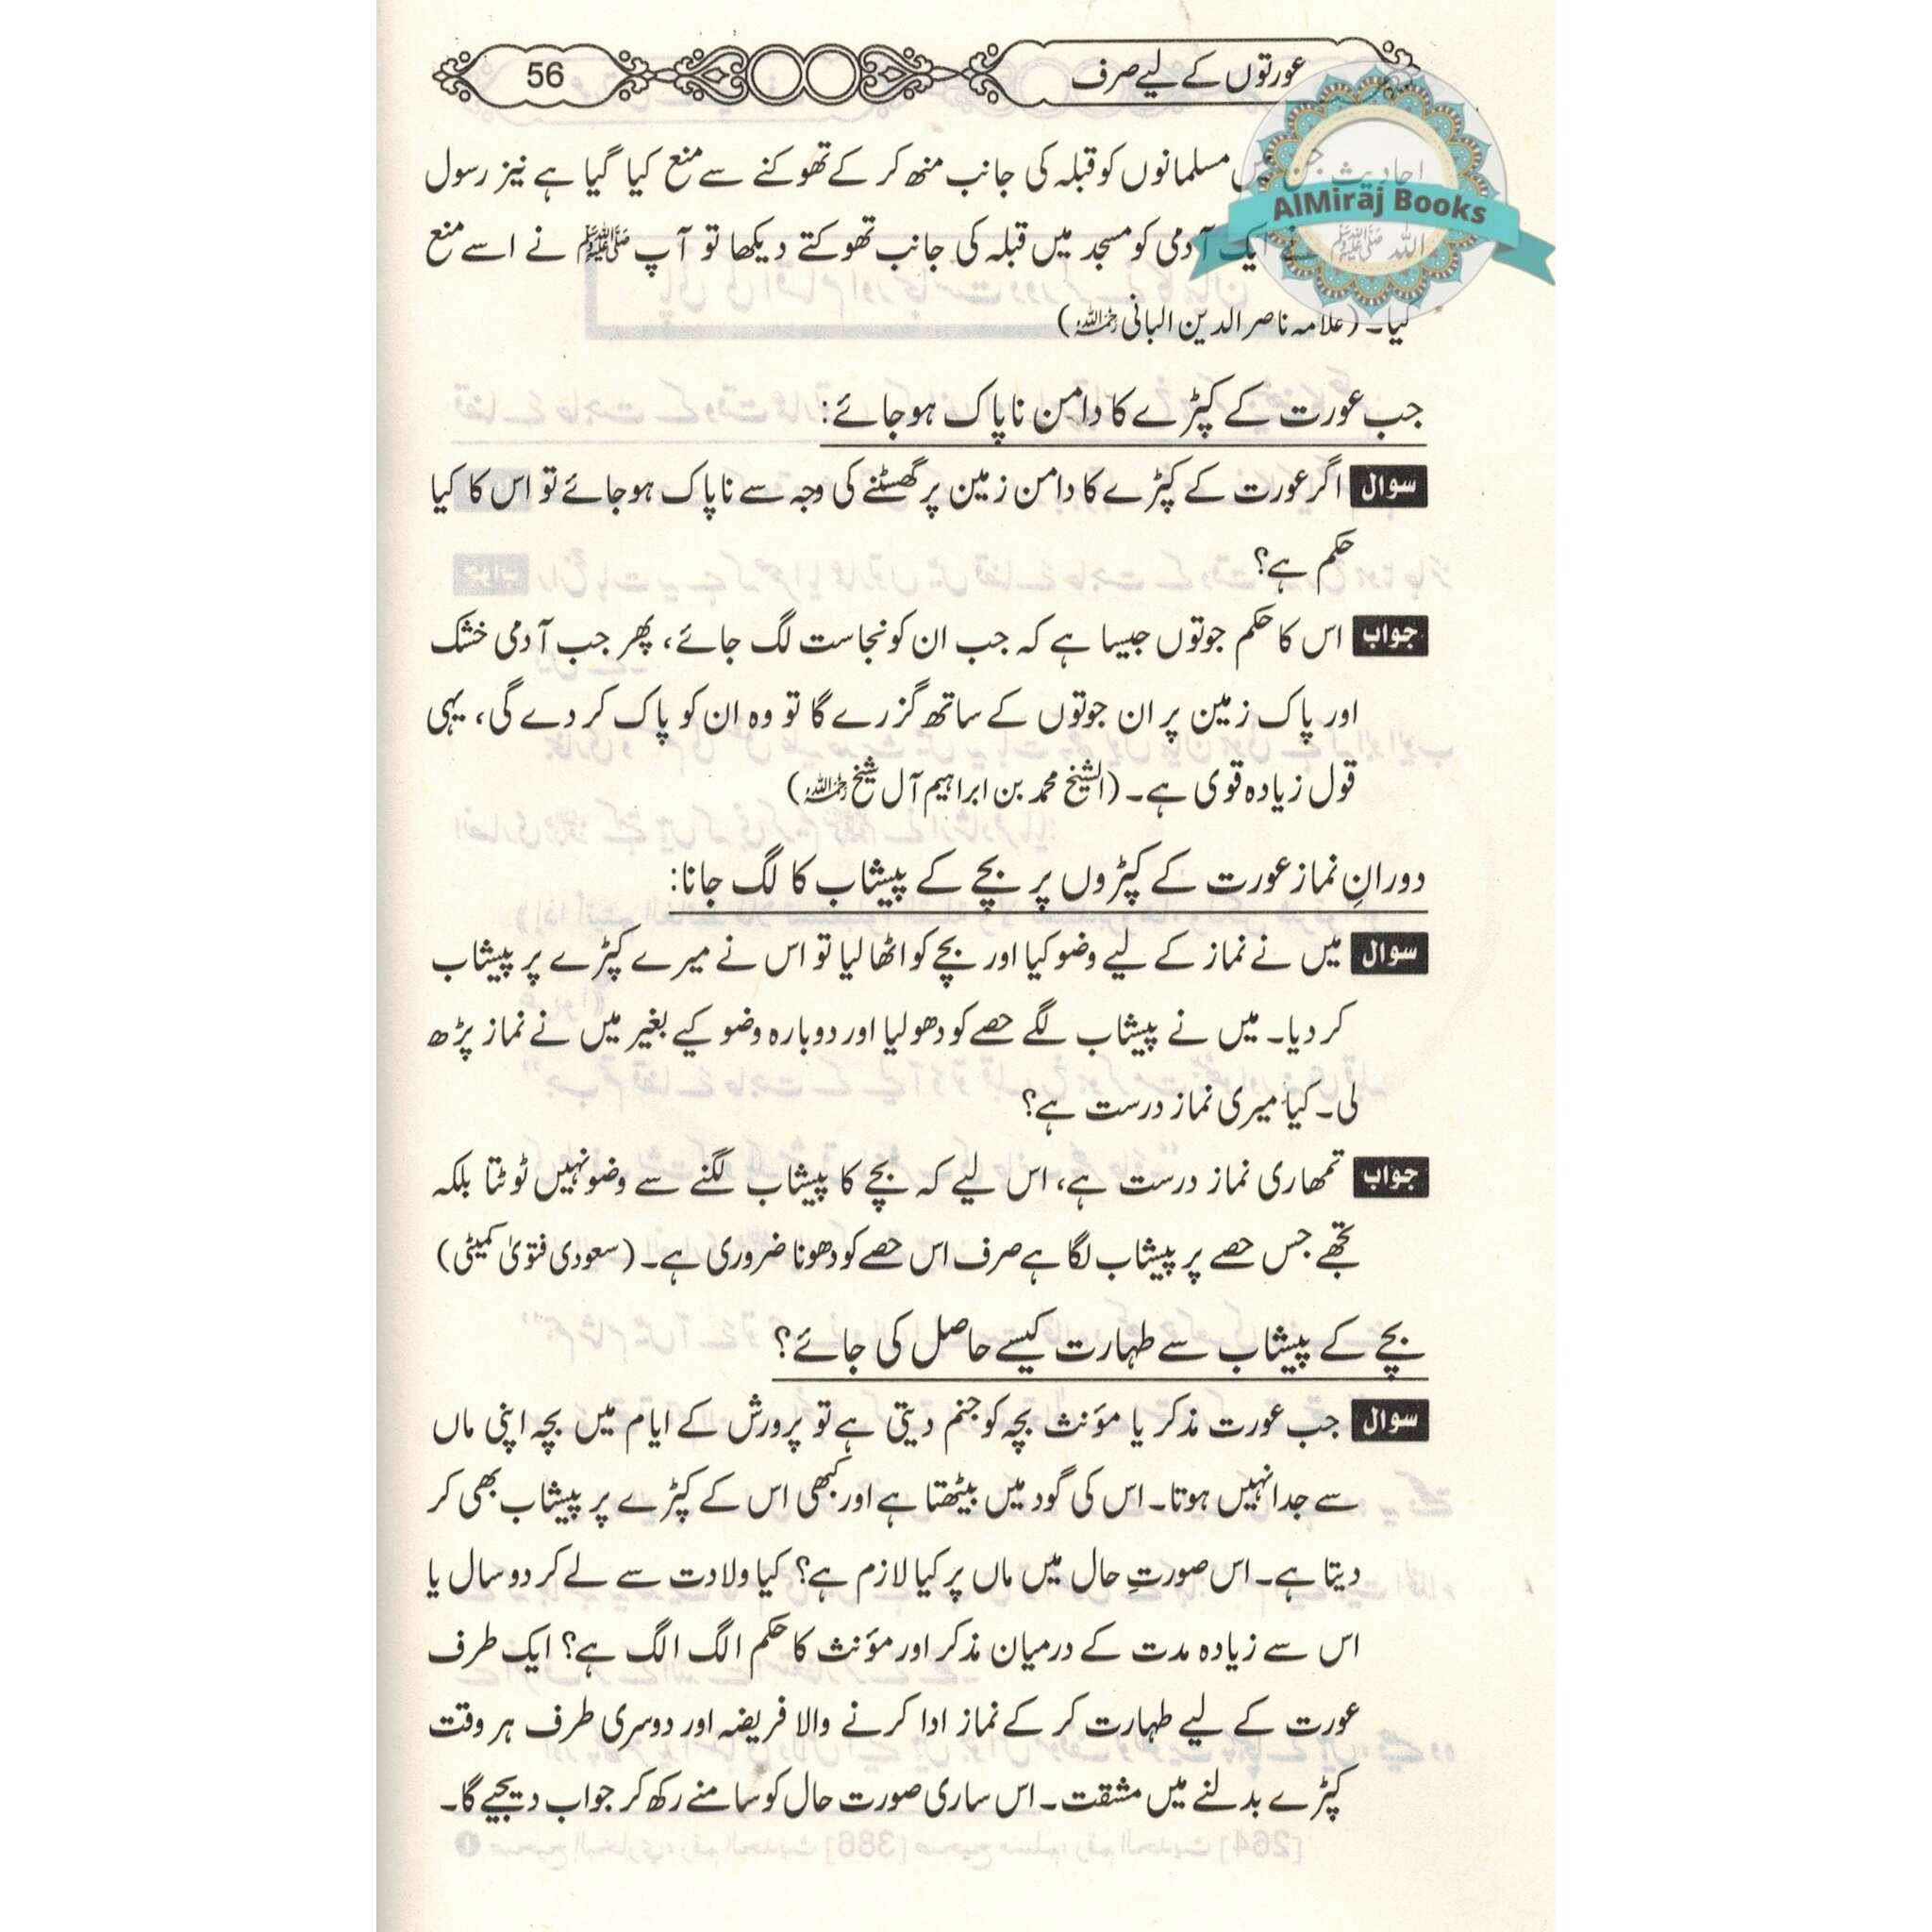 عورتوں کے لیے صرف
56
احادیث جن میں مسلمانوں کو قبلہ کی جانب منھ کر کے تھوکنے سے منع کیا گیا ہے نیز رسول
AlMiraj Books
اللہ ﷺ نے ایک آدمی کو مسجد میں قبلہ کی جانب تھوکتے دیکھا تو آپ ﷺ نے اسے منع
کیا۔ (علامہ ناصر الدین البانی رحمہ اللہ)
جب عورت کے کپڑے کا دامن ناپاک ہوجائے:
سوال اگر عورت کے کپڑے کا دامن زمین پر گھسٹنے کی وجہ سے ناپاک ہوجائے تو اس کا کیا
حکم ہے؟
جواب اس کا حکم جوتوں جیسا ہے کہ جب ان کو نجاست لگ جائے، پھر جب آدمی خشک
اور پاک زمین پر ان جوتوں کے ساتھ گزرے گا تو وہ ان کو پاک کر دے گی، یہی
قول زیادہ قوی ہے۔ (الشیخ محمد بن ابراہیم آل شیخ رحمہ اللہ)
دورانِ نماز عورت کے کپڑوں پر بچے کے پیشاب کا لگ جانا:
سوال میں نے نماز کے لیے وضو کیا اور بچے کو اٹھا لیا تو اس نے میرے کپڑے پر پیشاب
کر دیا۔ میں نے پیشاب لگے حصے کو دھو لیا اور دوبارہ وضو کیے بغیر میں نے نماز پڑھ
لی۔ کیا میری نماز درست ہے؟
جواب تمھاری نماز درست ہے، اس لیے کہ بچے کا پیشاب لگنے سے وضو نہیں ٹوٹتا بلکہ
تجھے جس حصے پر پیشاب لگا ہے صرف اس حصے کو دھونا ضروری ہے۔ (سعودی فتویٰ کمیٹی)
بچے کے پیشاب سے طہارت کیسے حاصل کی جائے؟
سوال جب عورت مذکر یا مؤنث بچہ کو جنم دیتی ہے تو پرورش کے ایام میں بچہ اپنی ماں
سے جدا نہیں ہوتا۔ اس کی گود میں بیٹھتا ہے اور کبھی اس کے کپڑے پر پیشاب بھی کر
دیتا ہے۔ اس صورتِ حال میں ماں پر کیا لازم ہے؟ کیا ولادت سے لے کر دو سال یا
اس سے زیادہ مدت کے درمیان مذکر اور مؤنث کا حکم الگ الگ ہے؟ ایک طرف
عورت کے لیے طہارت کر کے نماز ادا کرنے والا فریضہ اور دوسری طرف ہر وقت
کپڑے بدلنے میں مشقت۔ اس ساری صورت حال کو سامنے رکھ کر جواب دیجیے گا۔